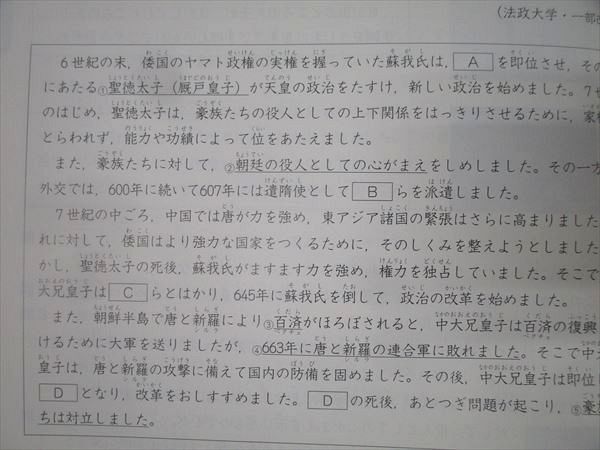 (法政大学・一部改
6世紀の末，倭国のヤマト政権の実権を握っていた蘇我氏は，Aを即位させ，その
にあたる①聖徳太子(厩戸皇子)が天皇の政治をたすけ，新しい政治を始めました。7世
のはじめ，聖徳太子は，豪族たちの役人としての上下関係をはっきりさせるために，家柄
とらわれず，能力や功績によって位をあたえました。
また，豪族たちに対して，②朝廷の役人としての心がまえをしめしました。その一方
外交では，600年に続いて607年には遣隋使としてBらを派遣しました。
7世紀の中ごろ，中国では唐が力を強め，東アジア諸国の緊張はさらに高まりました
れに対して，倭国はより強力な国家をつくるために，そのしくみを整えようとしました
かし，聖徳太子の死後，蘇我氏がますます力を強め，権力を独占していました。そこで
大兄皇子はCらとはかり，645年に蘇我氏を倒して，政治の改革を始めました。
また，朝鮮半島で唐と新羅により③百済がほろぼされると，中大兄皇子は百済の復興
けるために大軍を送りましたが，④663年に唐と新羅の連合軍に敗れました。そこで中大
皇子は，唐と新羅の攻撃に備えて国内の防備を固めました。その後，中大兄皇子は即位し
Dとなり，改革をおしすすめました。Dの死後，あとつぎ問題が起こり，⑤豪族
ちは対立しました。